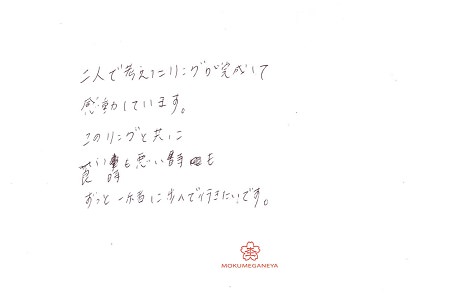 二人で考えたリングが完成して
感動しています。
このリングと共に
良い時も悪い時も
ずっと一緒に歩んで行きたいです。
MOKUMEGANEYA